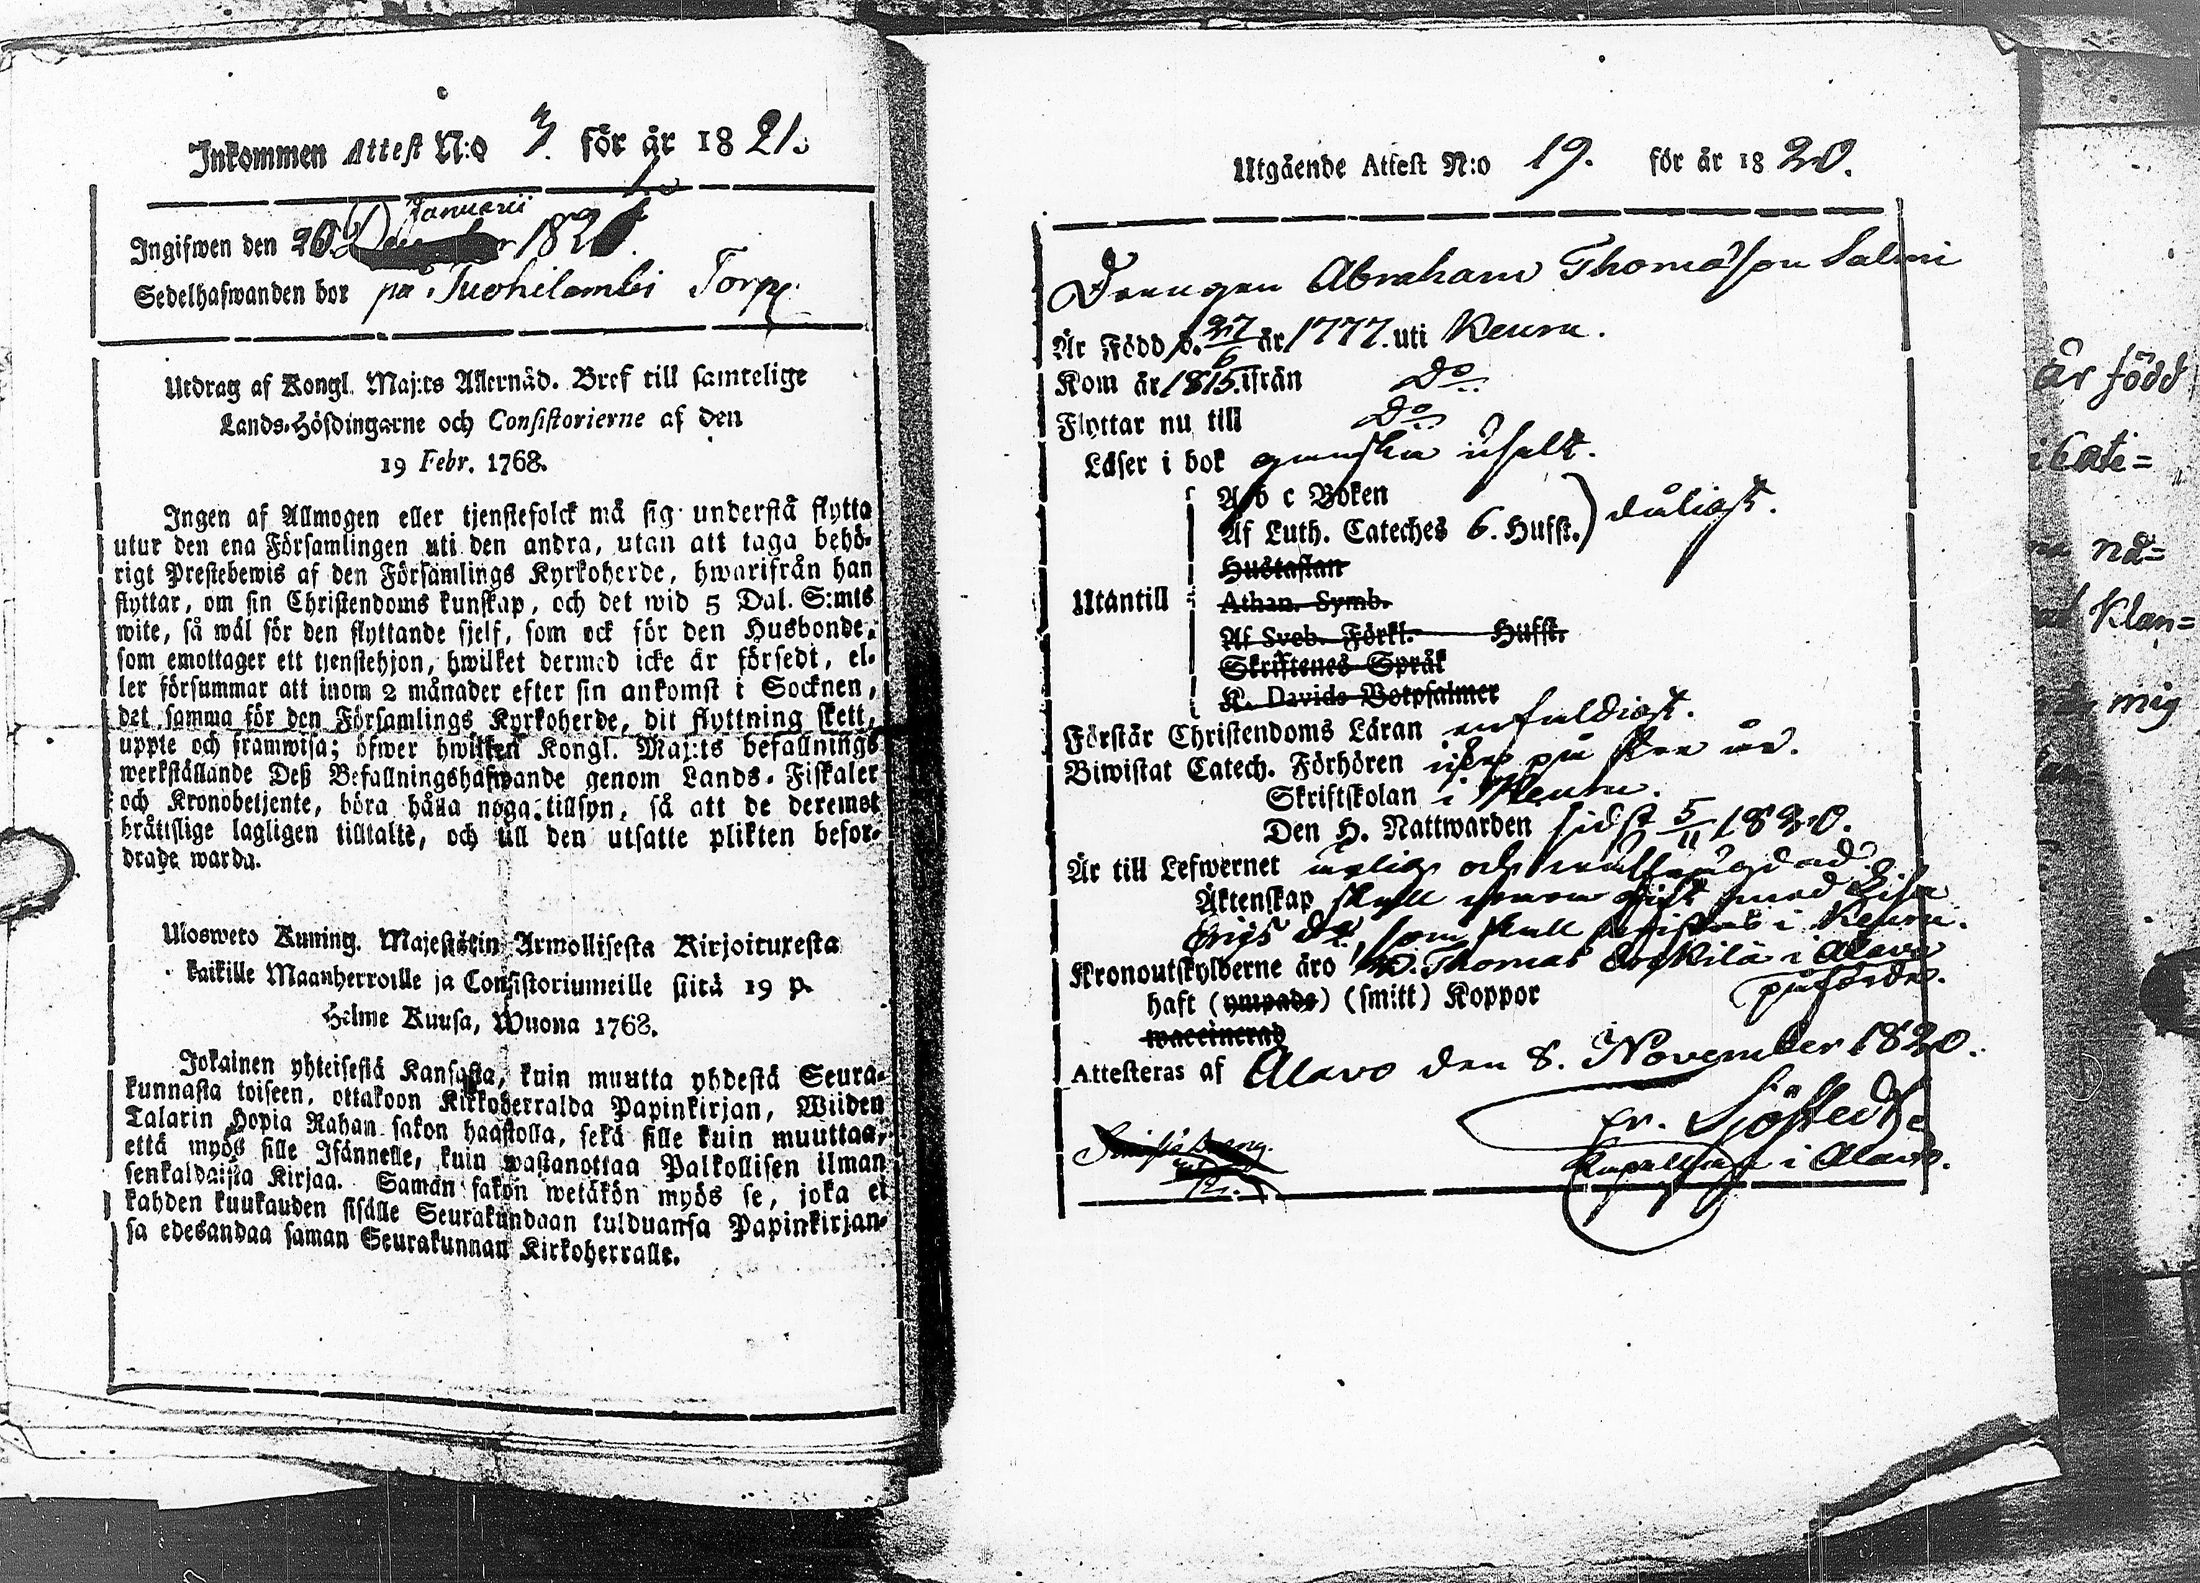 Inkommen Attest N:o 3. för år 1821.
Ingifwen den 20. Januarii 1821.
Sedelhafwanden bor på Suohilambi Torp.
Utdrag af Kongl. Maj:ts Allernåd. Bref till samtelige
Lands-Höfdingarne och Consistorierne af den
19 Febr. 1768.
Ingen af Allmogen eller tjenstefolck må sig understå flytta
utur den ena Församlingen uti den andra, utan att taga behö-
rigt Prestebewis af den Församlings Kyrkoherde, hwarifrån han
flyttar, om sin Christendoms kunskap, och det wid 5 Dal. S:mts
wite, så wäl för den flyttande sjelf, som ock för den Husbonde,
som emottager ett tjenstehjon, hwilket dermed icke är försedt, el-
ler försummar att inom 2 månader efter sin ankomst i Socknen,
det samma för den Församlings Kyrkoherde, dit flyttning skett,
uppte och framwisa; öfwer hwilken Kongl. Maj:ts befallnings
werkställande Deß Befallningshafwande genom Lands-Fiskaler
och Kronobetjente, böra hålla noga tillsyn, så att de deremot
bråttslige lagligen tilltalte, och till den utsatte plikten befor-
drade warda.
Ulosweto Kuning. Majestätin Armollisesta Kirjoituxesta
kaikille Maanherroille ja Consistoriumeille siitä 19 p.
Helme Kuusa, Wuona 1768.
Jokainen yhteisestä Kansasta, kuin muutta yhdestä Seura-
kunnasta toiseen, ottakoon Kirkoherralda Papinkirjan, Wiiden
Talarin Hopia Rahan sakon haastolla, sekä sille kuin muuttaa,
että myös sille Isännelle, kuin wastanottaa Palkollisen ilman
senkaldaista Kirjaa. Samän sakon wetäkön myös se, joka ei
kahden kuukauden sisälle Seurakundaan tulduansa Papinkirjan-
sa edesandaa saman Seurakunnan Kirkoherralle.
Utgående Attest N:o 19. för år 1820.
Drengen Abraham Thomasson Salmi
Är Född d. 27/6 år 1777. uti Keuru.
Kom år 1815. ifrån Do
Flyttar nu till Do
Läser i bok ganska uselt.
A b c Boken
Af Luth. Cateches 6. Hufst. dåligt.
Hustaflan
Utantill Athan. Symb.
Af Sveb. Förkl. Hufst.
Skriftenes Språk
K. Davids Botpsalmer
Förstår Christendoms Läran enfaldigt.
Biwistat Catech. Förhören icke på flere år.
Skriftskolan i Keuru.
Den H. Nattwarden sidst 5/11 1820.
Är till Lefwernet och
Äktenskap skall wara gift med Lisa
Erics dr, som skall wistas i Keuru.
Kronoutskylderne äro Thomas i Alavo
påförde.
haft (ympade) (smitt) Koppor
waccinerad
Attesteras af Alavo den 8. November 1820.
Er. Sjöstedt.
Kapellan i Alavo.
är född
i Cate=
nå=
Klan=
mig